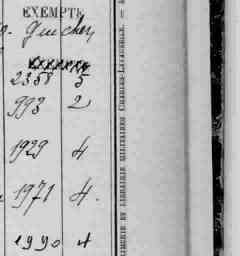 EXEMPTÉ
2358 5
993 2
1929 4
1971 4.
1990 4
IMPRIMERIE ET LIBRAIRIE MILITAIRES CHARLES-LAVAUZELLE.